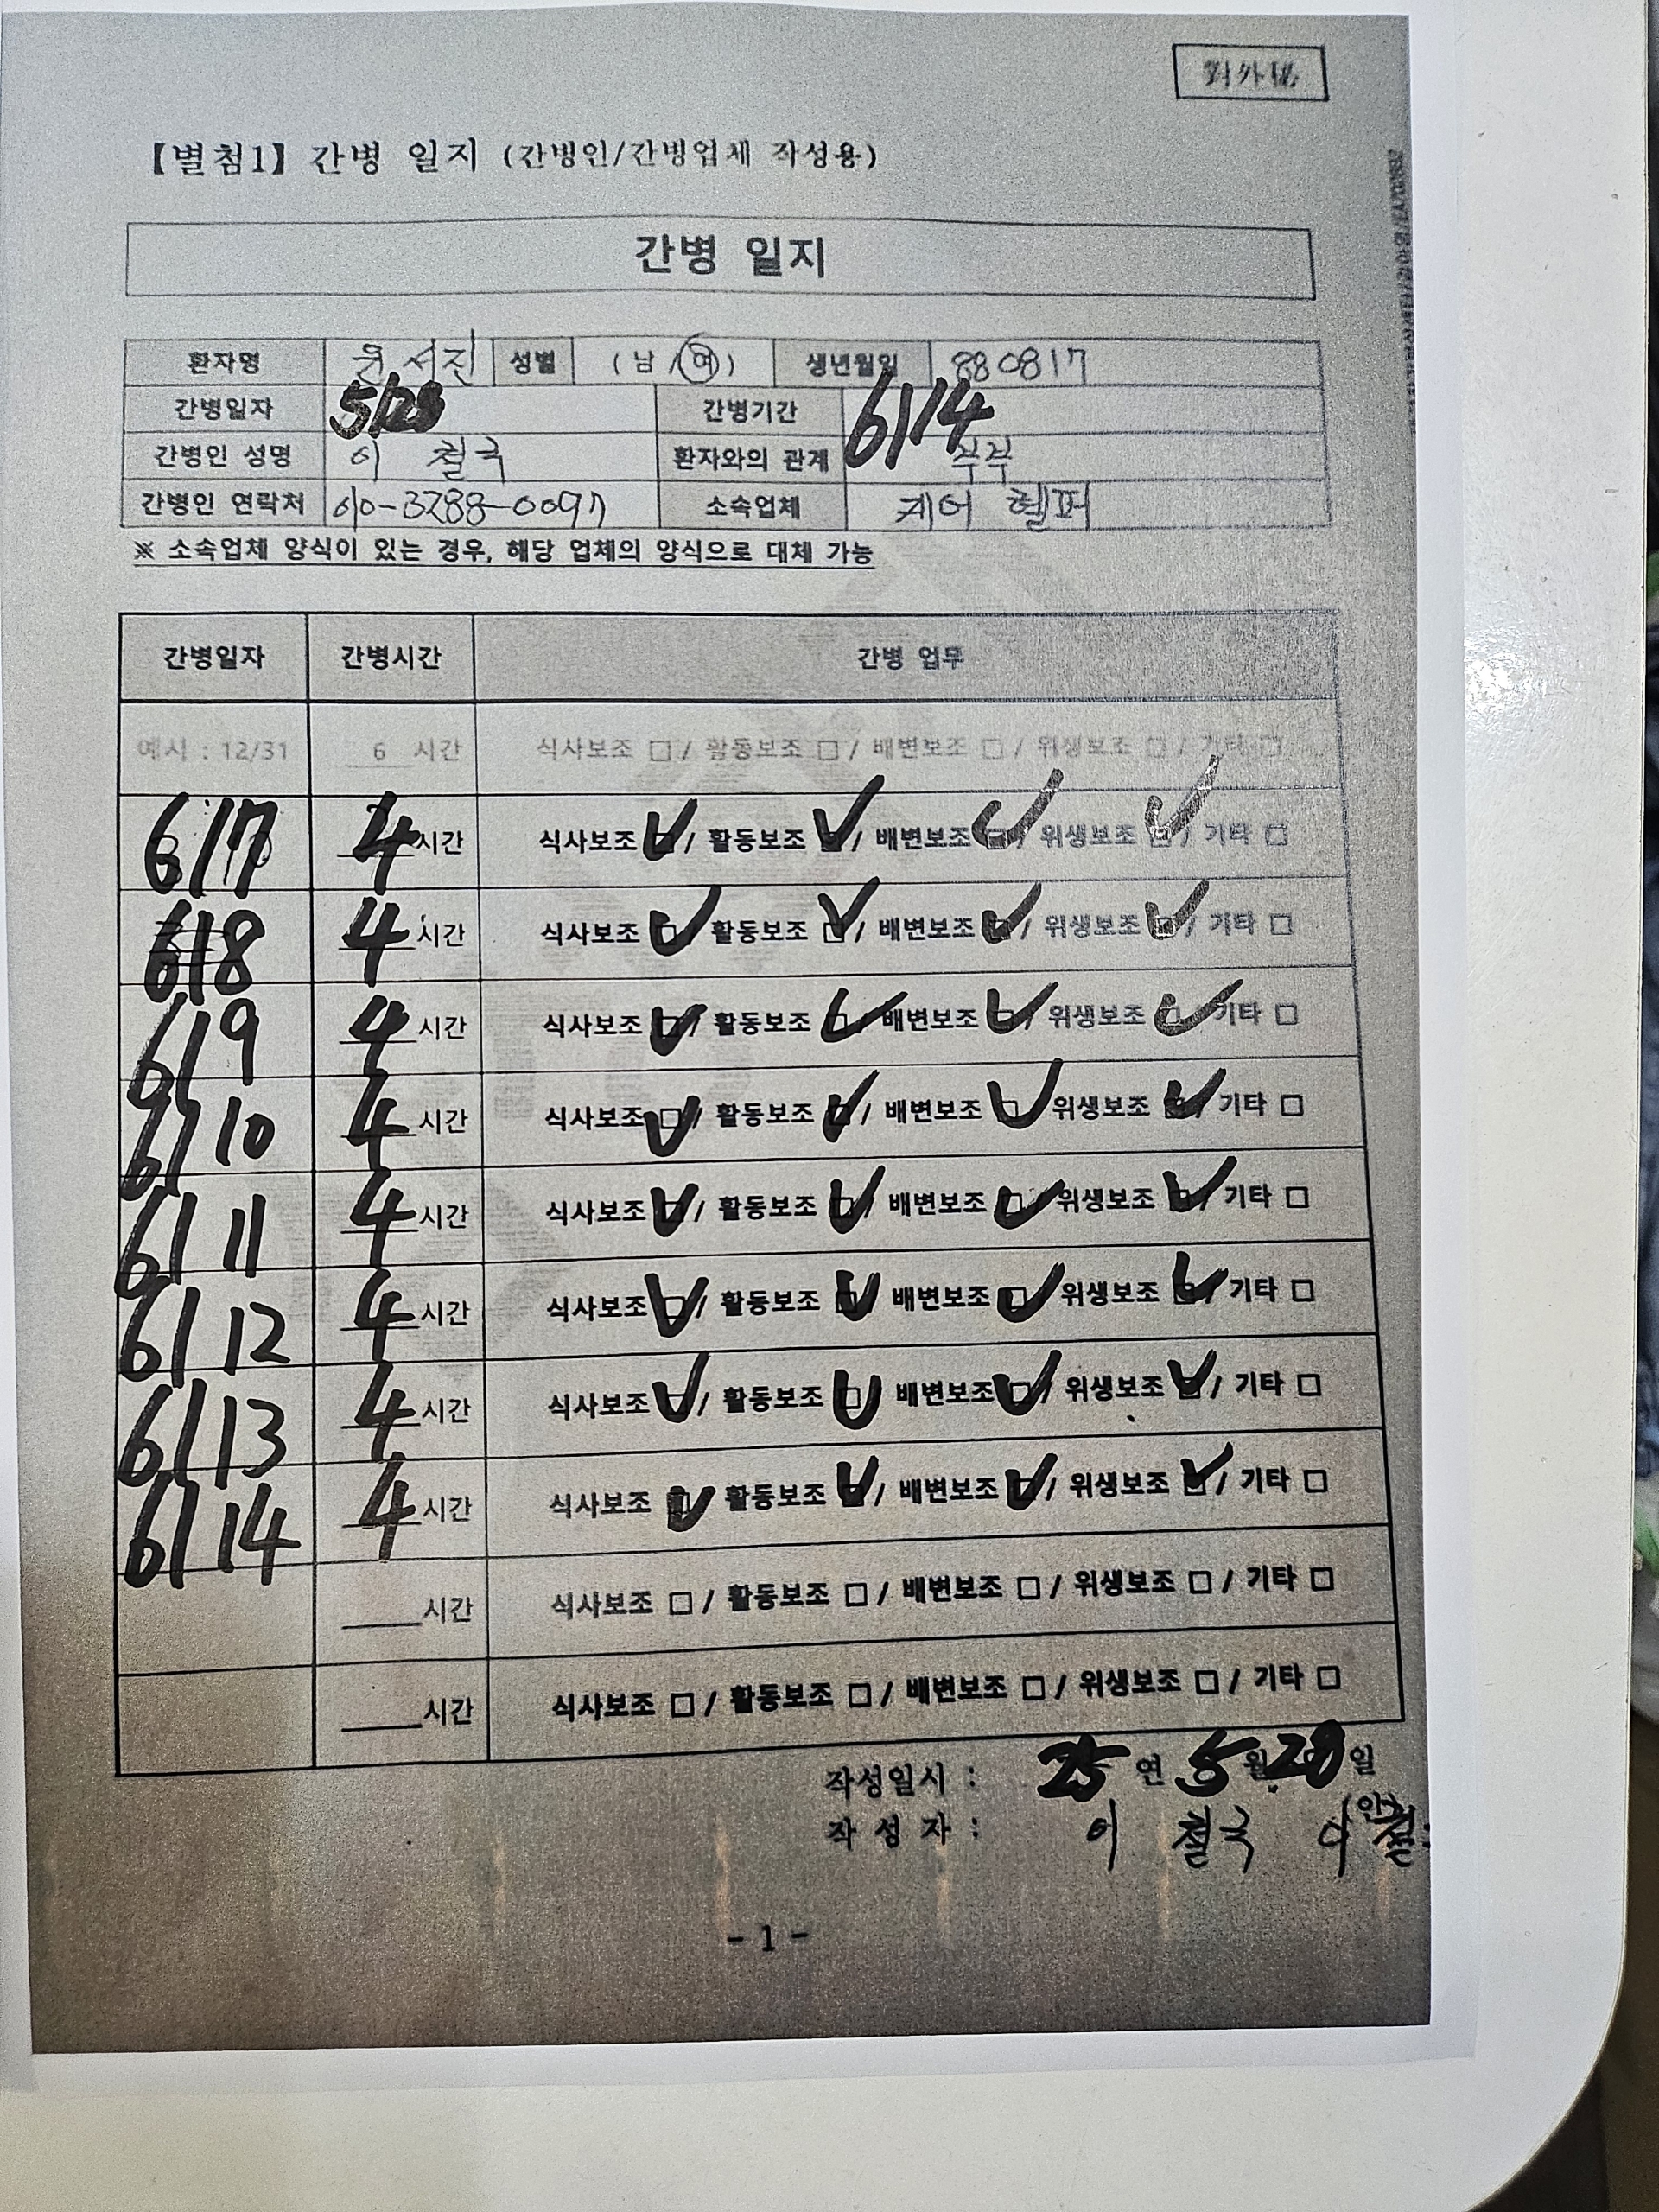 對外秘
【별첨1】 간병 일지 (간병인/간병업체 작성용)
간병 일지
환자명 윤서진 성별 ( 남 / 여 ) 생년월일 880817
간병일자 5/28 간병기간 6/14
간병인 성명 이 철국 환자와의 관계 부부
간병인 연락처 010-3288-0097 소속업체 케어 헬퍼
※ 소속업체 양식이 있는 경우, 해당 업체의 양식으로 대체 가능
간병일자 간병시간 간병 업무
예시 : 12/31 6 시간 식사보조 □ / 활동보조 □ / 배변보조 □ / 위생보조 □ / 기타 □
6/7 4 시간 식사보조 ☑ / 활동보조 ☑ / 배변보조 ☑ / 위생보조 ☑ / 기타 □
6/8 4 시간 식사보조 ☑ / 활동보조 ☑ / 배변보조 ☑ / 위생보조 ☑ / 기타 □
6/9 4 시간 식사보조 ☑ / 활동보조 ☑ / 배변보조 ☑ / 위생보조 ☑ / 기타 □
6/10 4 시간 식사보조 ☑ / 활동보조 ☑ / 배변보조 ☑ / 위생보조 ☑ / 기타 □
6/11 4 시간 식사보조 ☑ / 활동보조 ☑ / 배변보조 ☑ / 위생보조 ☑ / 기타 □
6/12 4 시간 식사보조 ☑ / 활동보조 ☑ / 배변보조 ☑ / 위생보조 ☑ / 기타 □
6/13 4 시간 식사보조 ☑ / 활동보조 ☑ / 배변보조 ☑ / 위생보조 ☑ / 기타 □
6/14 4 시간 식사보조 ☑ / 활동보조 ☑ / 배변보조 ☑ / 위생보조 ☑ / 기타 □
____시간 식사보조 □ / 활동보조 □ / 배변보조 □ / 위생보조 □ / 기타 □
____시간 식사보조 □ / 활동보조 □ / 배변보조 □ / 위생보조 □ / 기타 □
작성일시 : 25 연 5 월 28 일
작 성 자 : 이 철국 (인) 이철
- 1 -